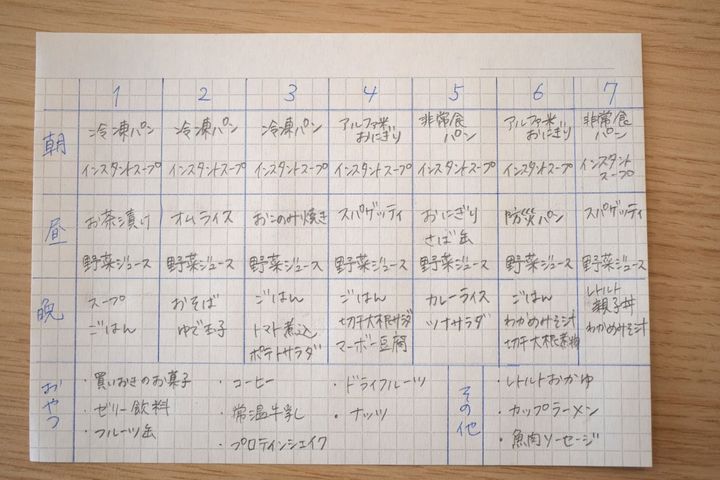 1 2 3 4 5 6 7
朝
冷凍パン 冷凍パン 冷凍パン アルファ米 非常食 アルファ米 非常食
おにぎり パン おにぎり パン
インスタントスープ インスタントスープ インスタントスープ インスタントスープ インスタントスープ インスタントスープ インスタント
スープ
昼
お茶漬け オムライス おこのみ焼き スパゲッティ おにぎり 防災パン スパゲッティ
さば缶
野菜ジュース 野菜ジュース 野菜ジュース 野菜ジュース 野菜ジュース 野菜ジュース
晩
スープ おそば ごはん ごはん カレーライス ごはん レトルト
親子丼
ごはん ゆで玉子 トマト煮込 切干大根サラダ ツナサラダ わかめみそ汁 わかめみそ汁
ポテトサラダ マーボー豆腐 切干大根煮物
おやつ
・買いおきのお菓子 ・コーヒー ・ドライフルーツ
・ゼリー飲料 ・常温牛乳 ・ナッツ
・フルーツ缶 ・プロテインシェイク
その他
・レトルトおかゆ
・カップラーメン
・魚肉ソーセージ